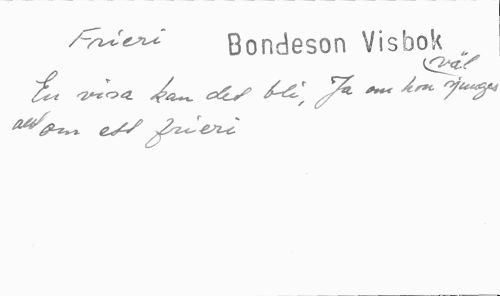 Frieri Bondeson Visbok
En visa kan det bli, Ja om hon väl sjunges
all om ett frieri